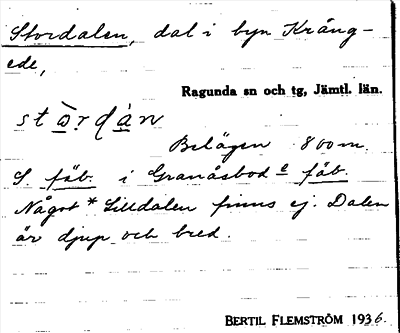 Stordalen, dal i byn Kräng-
ede,
Ragunda sn och tg, Jämtl. län.
Belägen 800 m.
S fäb. i Granåsbod e fäb.
Något * Lilldalen finns ej. Dalen
är djup och bred.
BERTIL FLEMSTRÖM 1936.